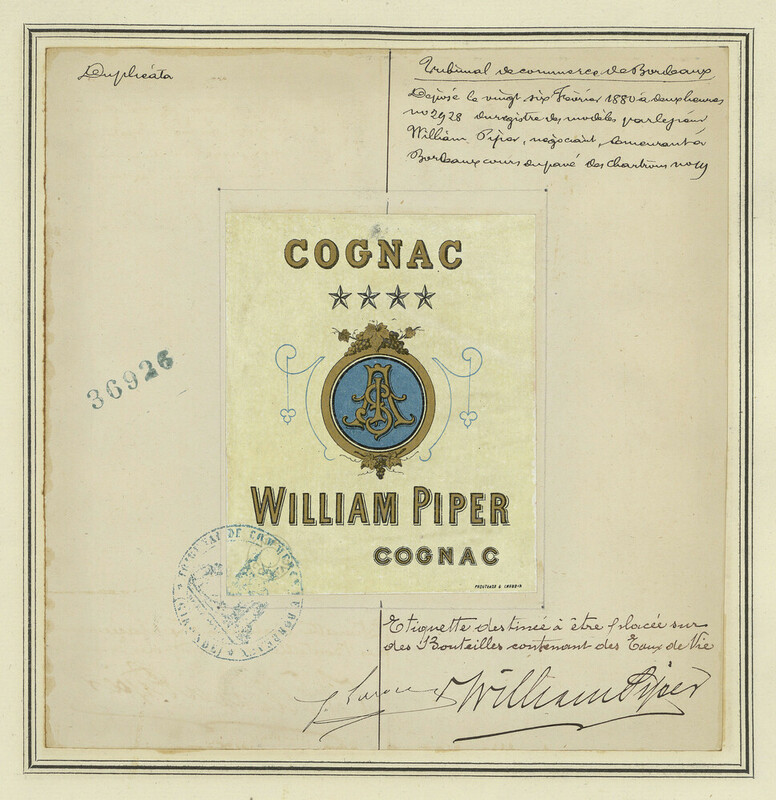 Duplicata
Tribunal de commerce de Bordeaux
Déposé le vingt six Février 1880 à deux heures
no 2928 du registre des modèles par le sieur
William Piper, négociant, demeurant à
Bordeaux cours du pavé des Chartrons no 19
COGNAC
36926
WILLIAM PIPER
COGNAC
TRIBUNAL DE COMMERCE DE BORDEAUX
(GIRONDE)
Etiquette destinée à être placée sur
des Bouteilles contenant des Eaux de Vie
William Piper